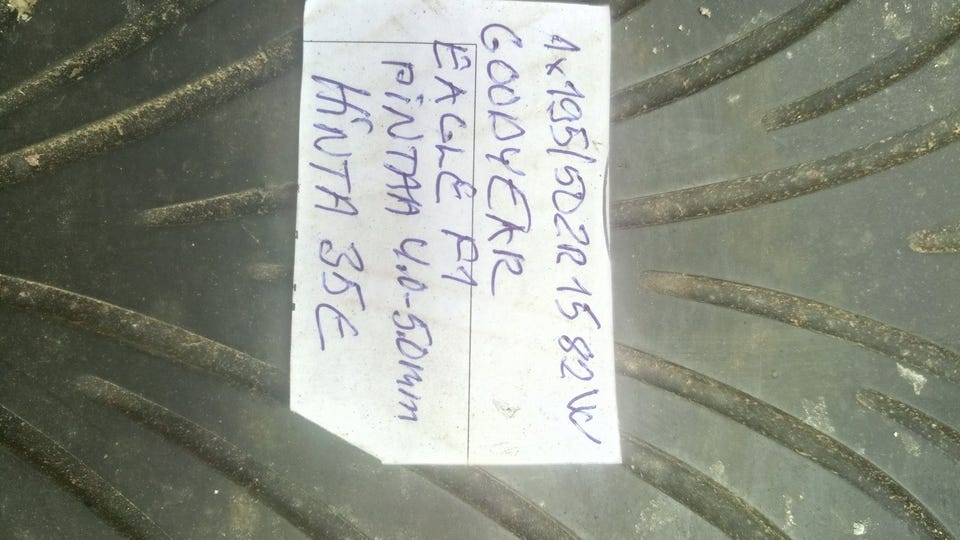 1x195/50ZR15 82W
GOODYEAR
EAGLE F1
PINTAA 4.0-5.0mm
HINTA 35€